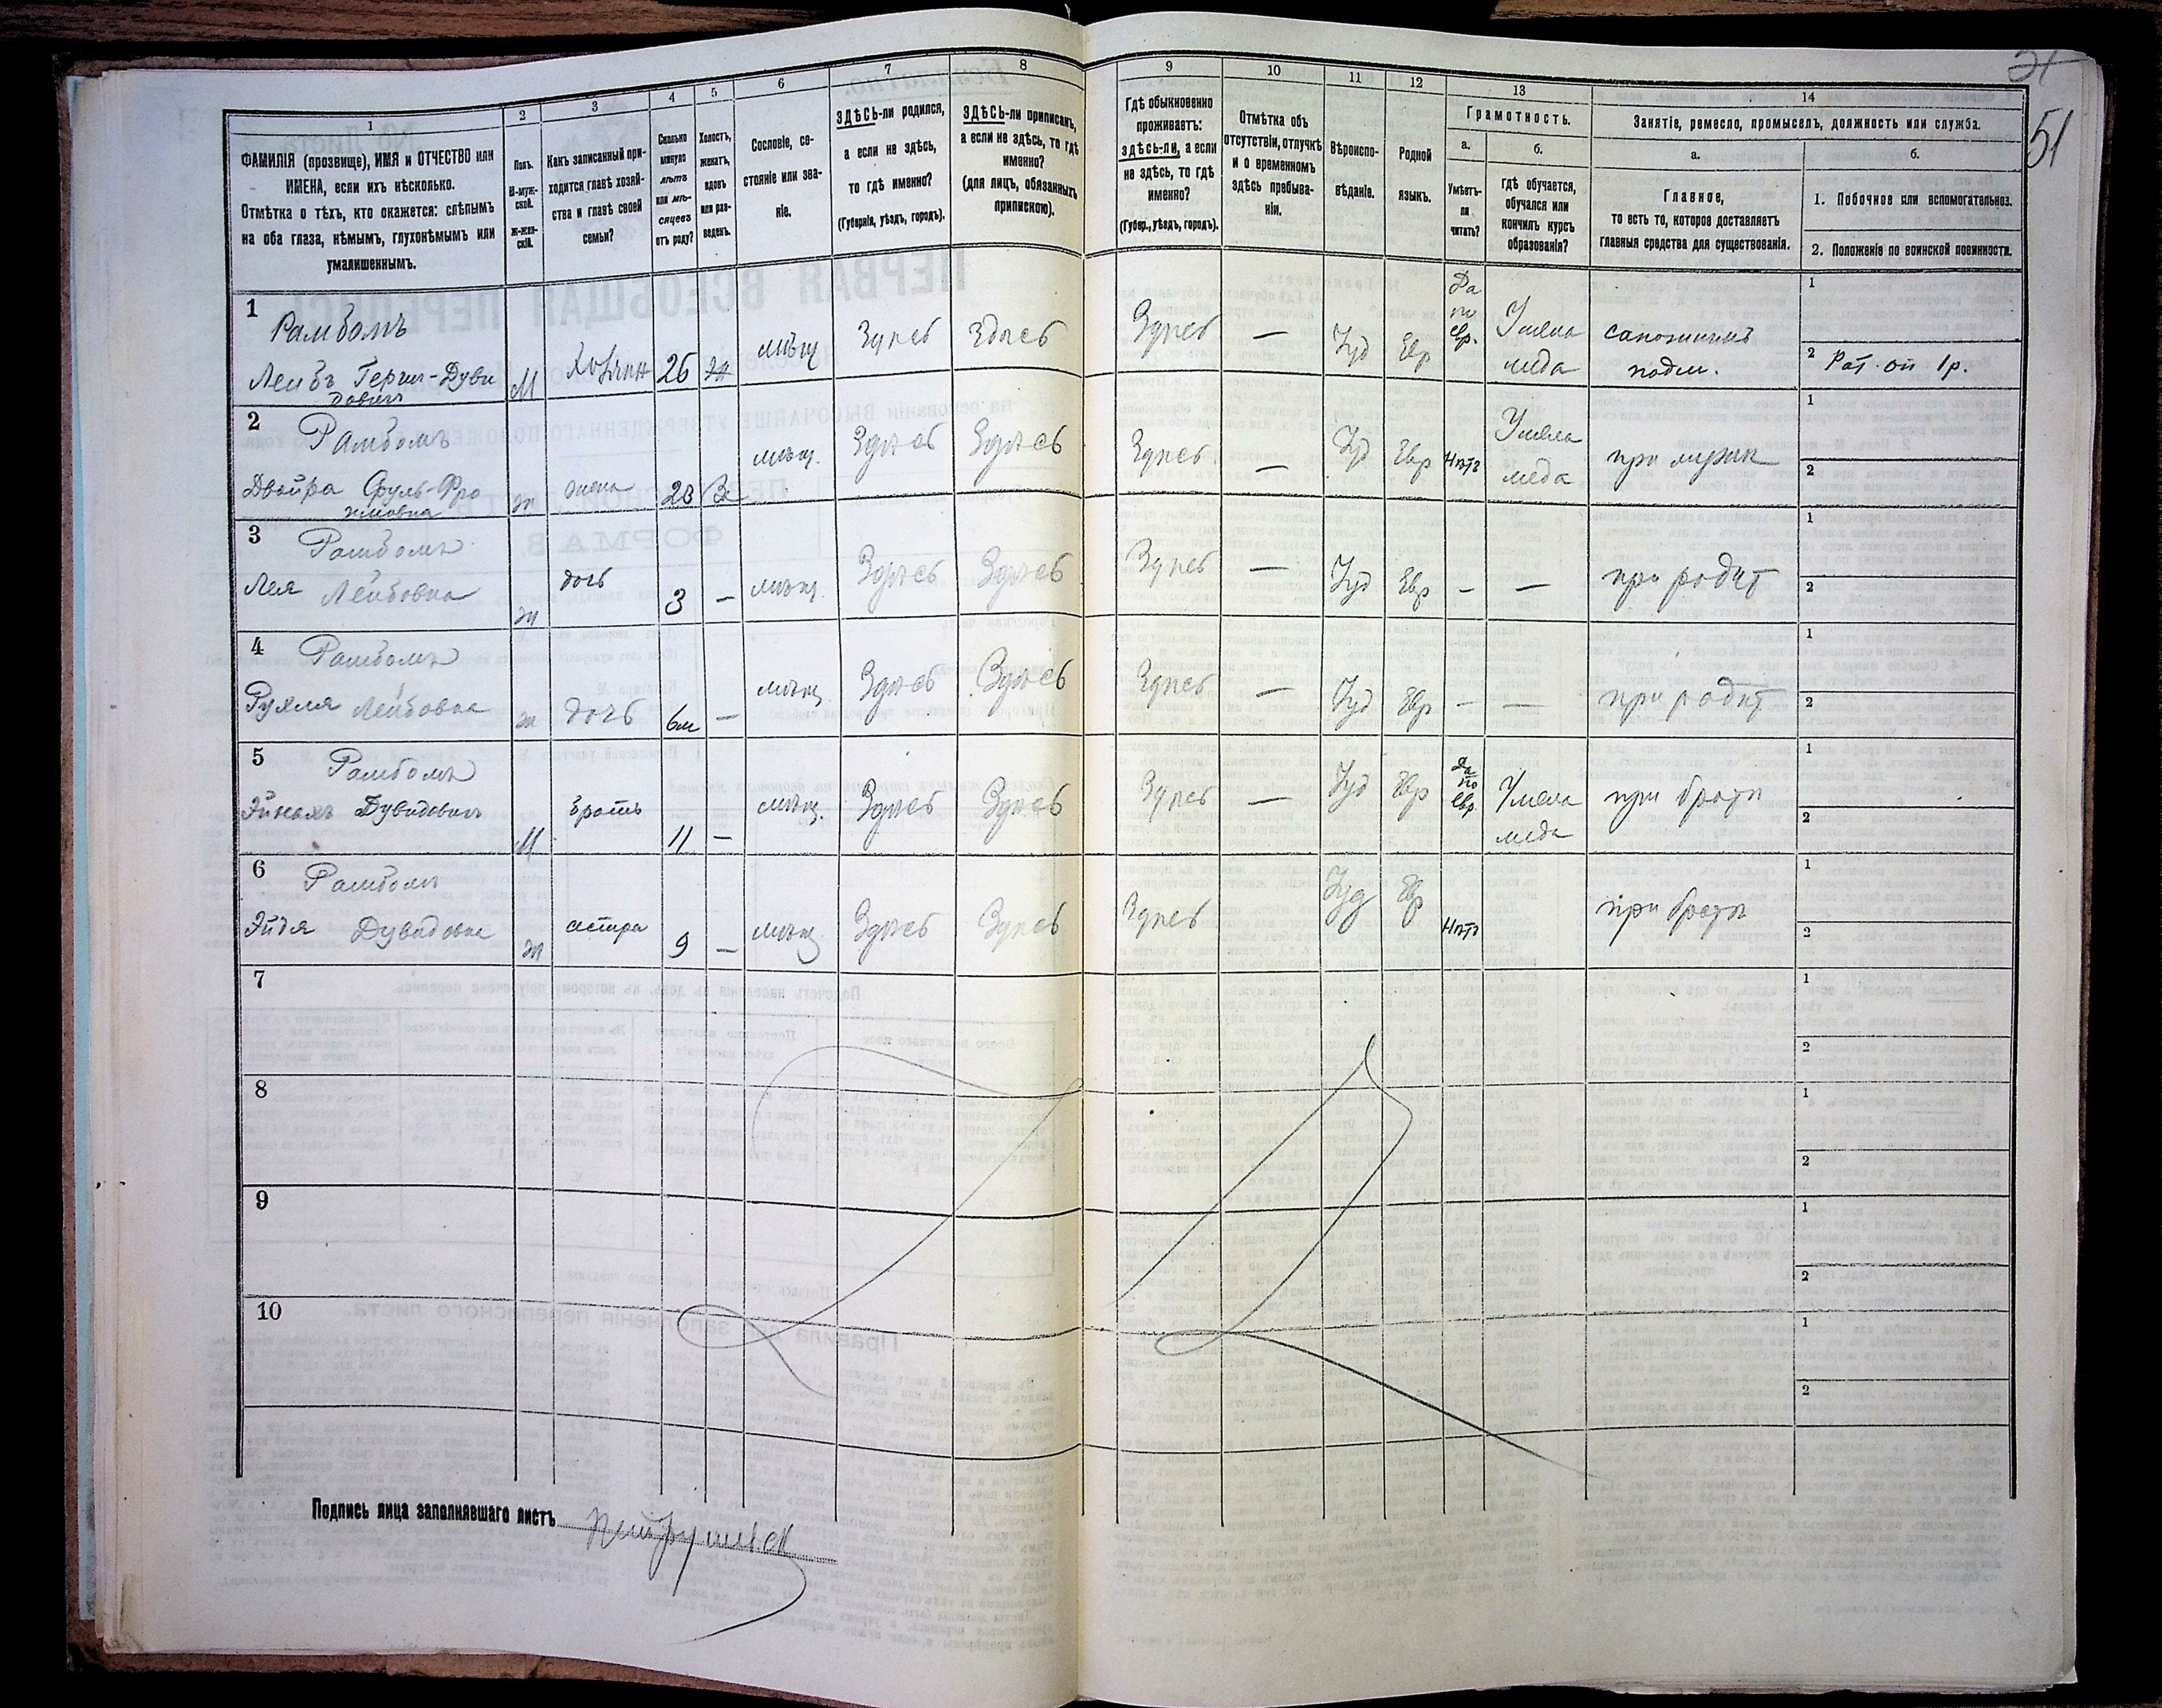 51
1
2
3
4
5
6
7
8
9
10
11
12
13
14
ФАМИЛІЯ (прозвище), ИМЯ и ОТЧЕСТВО или
ИМЕНА, если ихъ нѣсколько.
Отмѣтка о тѣхъ, кто окажется: слѣпымъ
на оба глаза, нѣмымъ, глухонѣмымъ или
умалишеннымъ.
Полъ.
М-муж-
ской.
Ж-жен-
скій.
Какъ записанный при-
ходится главѣ хозяй-
ства и главѣ своей
семьи?
Сколько
минуло
лѣтъ
или мѣ-
сяцевъ
отъ роду?
Холостъ,
женатъ,
вдовъ
или раз-
веденъ.
Сословіе, со-
стояніе или зва-
ніе.
ЗДѢСЬ-ли родился,
а если не здѣсь,
то гдѣ именно?
(Губернія, уѣздъ, городъ).
ЗДѢСЬ-ли приписанъ,
а если не здѣсь, то гдѣ
именно?
(для лицъ, обязанныхъ
припискою).
Гдѣ обыкновенно
проживаетъ:
здѣсь-ли, а если
не здѣсь, то гдѣ
именно?
(Губер., уѣздъ, городъ).
Отмѣтка объ
отсутствіи, отлучкѣ
и о временномъ
здѣсь пребыва-
ніи.
Вѣроиспо-
вѣданіе.
Родной
языкъ.
Грамотность.
а.
б.
Умѣетъ-
ли
читать?
гдѣ обучается,
обучался или
кончилъ курсъ
образованія?
Занятіе, ремесло, промыселъ, должность или служба.
а.
б.
Главное,
то есть то, которое доставляетъ
главныя средства для существованія.
1. Побочное или вспомогательное.
2. Положеніе по воинской повинности.
1 Рамбомъ
Лейбъ Герш-Дуви
довичъ
М Хозяинъ 26 ж мѣщ Здѣсь Здѣсь Здѣсь — Іуд Евр
Да
по
евр.
У мела
меда
сапожникъ
подм.
1
2 Рат. оп 1р.
2 Рамбомъ
Двойра
ж жена мѣщ. Здѣсь Здѣсь Здѣсь — Іуд Евр Нѣтъ
У мела
меда
1
2
3 Рамбомъ
Лея Лейбовна
ж дочь 3 — мѣщ. Здѣсь Здѣсь Здѣсь — Іуд Евр — — при родит
1
2
4 Рамбомъ
Рухля Лейбовна
ж дочь 6м — мѣщ Здѣсь Здѣсь Здѣсь — Іуд Евр — — при родит
1
2
5 Рамбомъ
Эйнахъ Дувидовичъ
М братъ 11 — мѣщ. Здѣсь Здѣсь Здѣсь — Іуд Евр
Да
по
евр
У мела
меда
при братѣ
1
2
6 Рамбомъ
Эйдя Дувидовна
ж сестра 9 — мѣщ Здѣсь Здѣсь Здѣсь Іуд Евр Нѣтъ при братѣ
1
2
7
1
2
8
1
2
9
1
2
10
1
2
Подпись лица заполнявшаго листъ